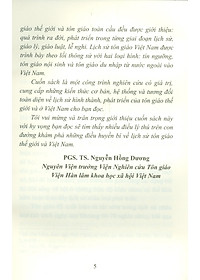 giáo thế giới và tôn giáo toàn cầu đều được giới thiệu:
quá trình ra đời, phát triển trong từng giai đoạn lịch sử,
giáo lý, giáo luật, lễ nghi. Lịch sử tôn giáo Việt Nam được
trình bày theo lối thông sử với hai loại hình: tín ngưỡng
tôn giáo nội sinh và tôn giáo du nhập từ nước ngoài vào
Việt Nam.
Cuốn sách là một công trình nghiên cứu có giá trị,
cung cấp những kiến thức cơ bản, hệ thống và tương đối
toàn diện về lịch sử hình thành, phát triển của tôn giáo thế
giới và ở Việt Nam cho bạn đọc.
Tôi vui mừng và trân trọng giới thiệu cuốn sách này với
hy vọng bạn đọc sẽ tìm thấy nhiều điều lý thú trên con
đường khám phá những điều huyền bí về lịch sử tôn giáo
thế giới và Việt Nam.
PGS. TS. Nguyễn Hồng Dương
Nguyên Viện trưởng Viện Nghiên cứu Tôn giáo
Viện Hàn lâm khoa học xã hội Việt Nam
5